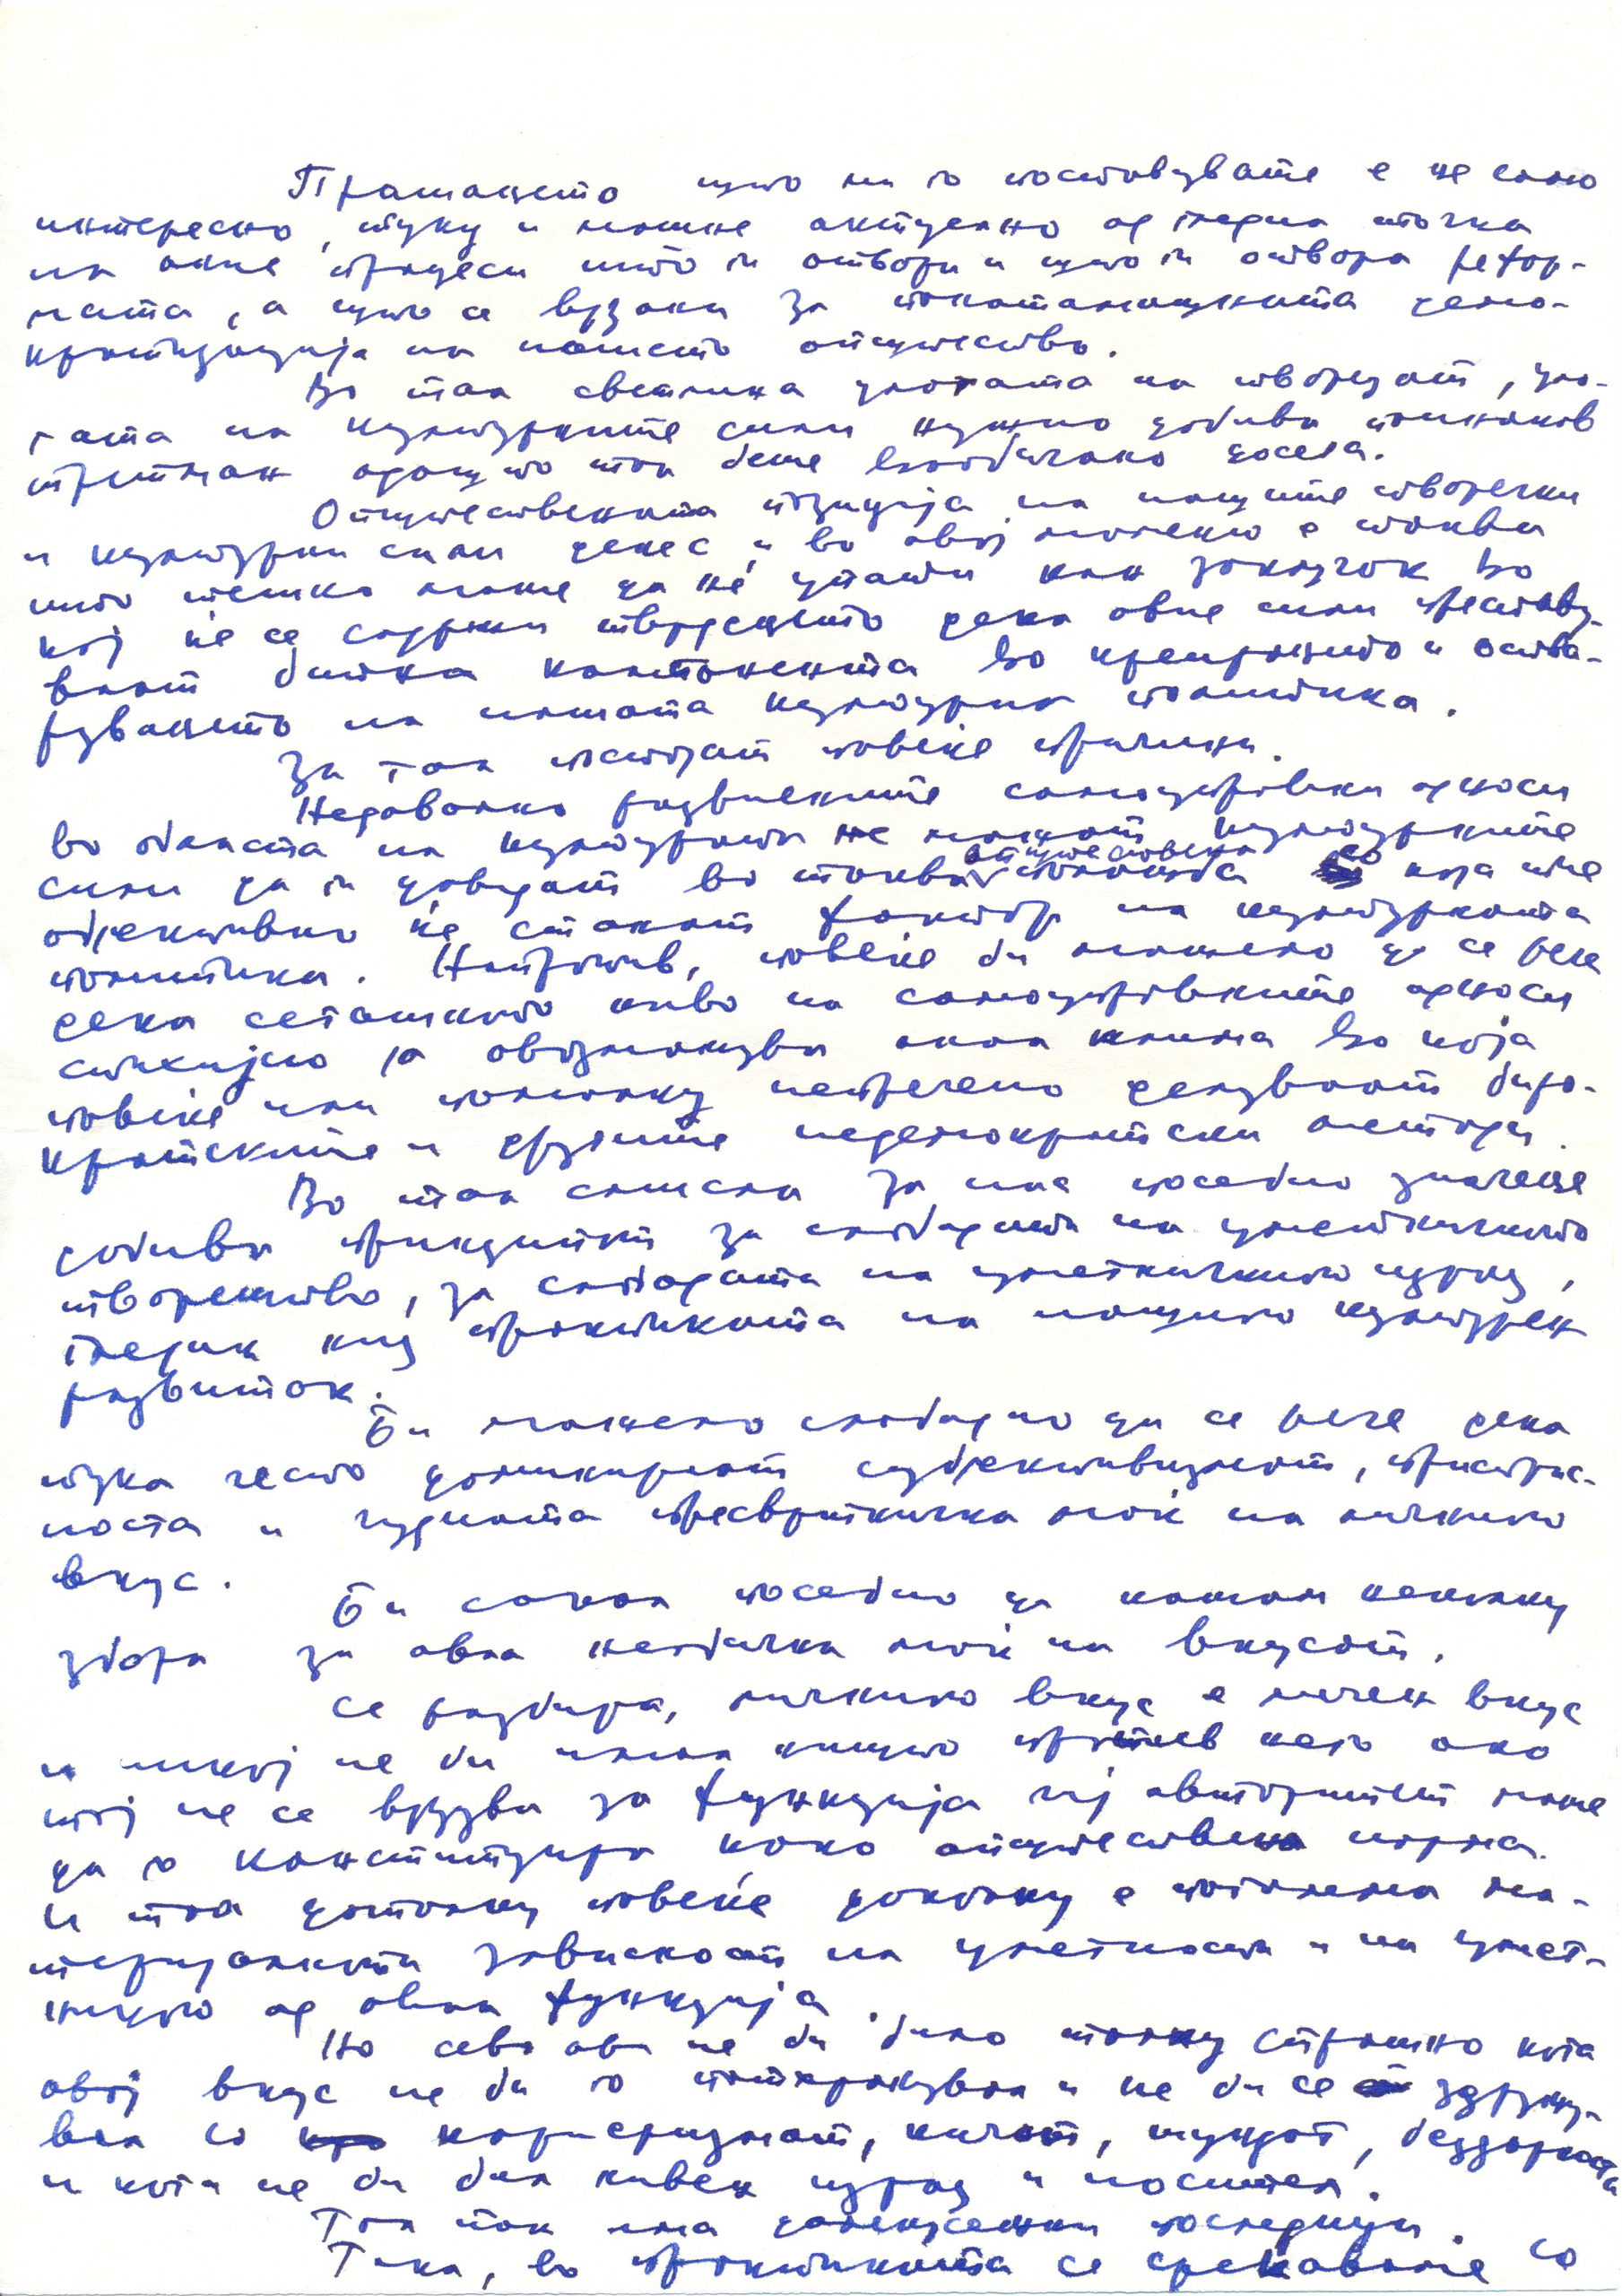 Прашањето што ми го поставувате е не само
интересно, туку и мошне актуелно од гледна точка
на оние процеси што ги отвори и што ги отвора рефор-
мата, а што се врзани за понатамошната демо-
кратизација на нашето општество.
Во таа светлина улогата на творецот, уло-
гата на културните сили нужно добива поинаков
третман одошто тоа беше вообичаено досега.
Општествената позиција на нашите творечки
и културни сили денес и во овој момент е таква
што тешко може да нè упати кон заклучок во
кој ќе се содржи тврдењето дека овие сили преставу-
ваат битна компонента во креирањето и оства-
рувањето на нашата културна политика.
За тоа постојат повеќе причини.
Недоволно развиените самоуправни односи
во областа на културата не можат културните
сили да ги доведат во таква општествена положба во која тие
објективно ќе станат фактор на културната
политика. Напротив, повеќе би можело да се рече
дека сегашното ниво на самоуправните односи
стихијно ја овозможува онаа клима во која
повеќе или помалку непречено делуваат биро-
кратските и другите недемократски методи.
Во таа смисла за нас посебно значење
добива принципот за слободата на уметничкото
творештво, за слободата на уметничкиот израз,
гледан низ практиката на нашиот културен
развиток.
Би можело слободно да се рече дека
тука често доминираат субјективизмот, пристрас-
носта и чудната пресвртничка моќ на личниот
вкус.
Би сакал посебно да кажам неколку
збора за оваа необична моќ на вкусот.
Се разбира, личниот вкус е личен вкус
и никој не би имал ништо против него ако
тој не се врзува за функција чиј авторитет може
да го конституира како општествена норма.
И тоа дотолку повеќе доколку е поголема ма-
теријалната зависност на уметноста и на умет-
никот од оваа функција.
Но сево ова не би било толку страшно кога
овој вкус не би го поткрепувал и не би се здружу-
вал со кариеризмот, кичот, шундот, бездарноста
и кога не би бил нивен израз и носител.
Тоа пак има далекусежни последици.
Така, во практиката се среќаваме со